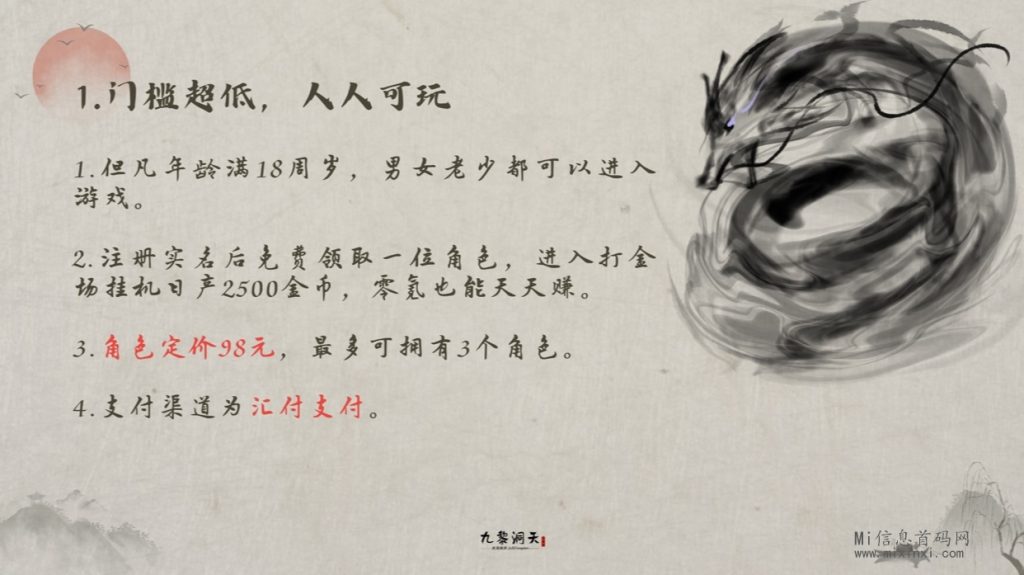 1.门槛超低，人人可玩
1.但凡年龄满18周岁，男女老少都可以进入
游戏。
2.注册实名后免费领取一位角色，进入打金
场挂机日产2500金币，零氪也能天天赚。
3.角色定价98元，最多可拥有3个角色。
4.支付渠道为汇付支付。
九黎洞天
Mi信息首码网
www.mixinxi.com